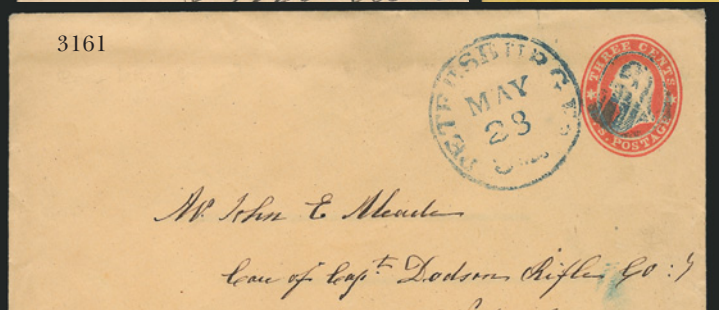 3161
PETERSBURG Va.
MAY
28
THREE CENTS
U.S. POSTAGE
Mr. John E Meade
Care of Capt Dodson Rifle Co :